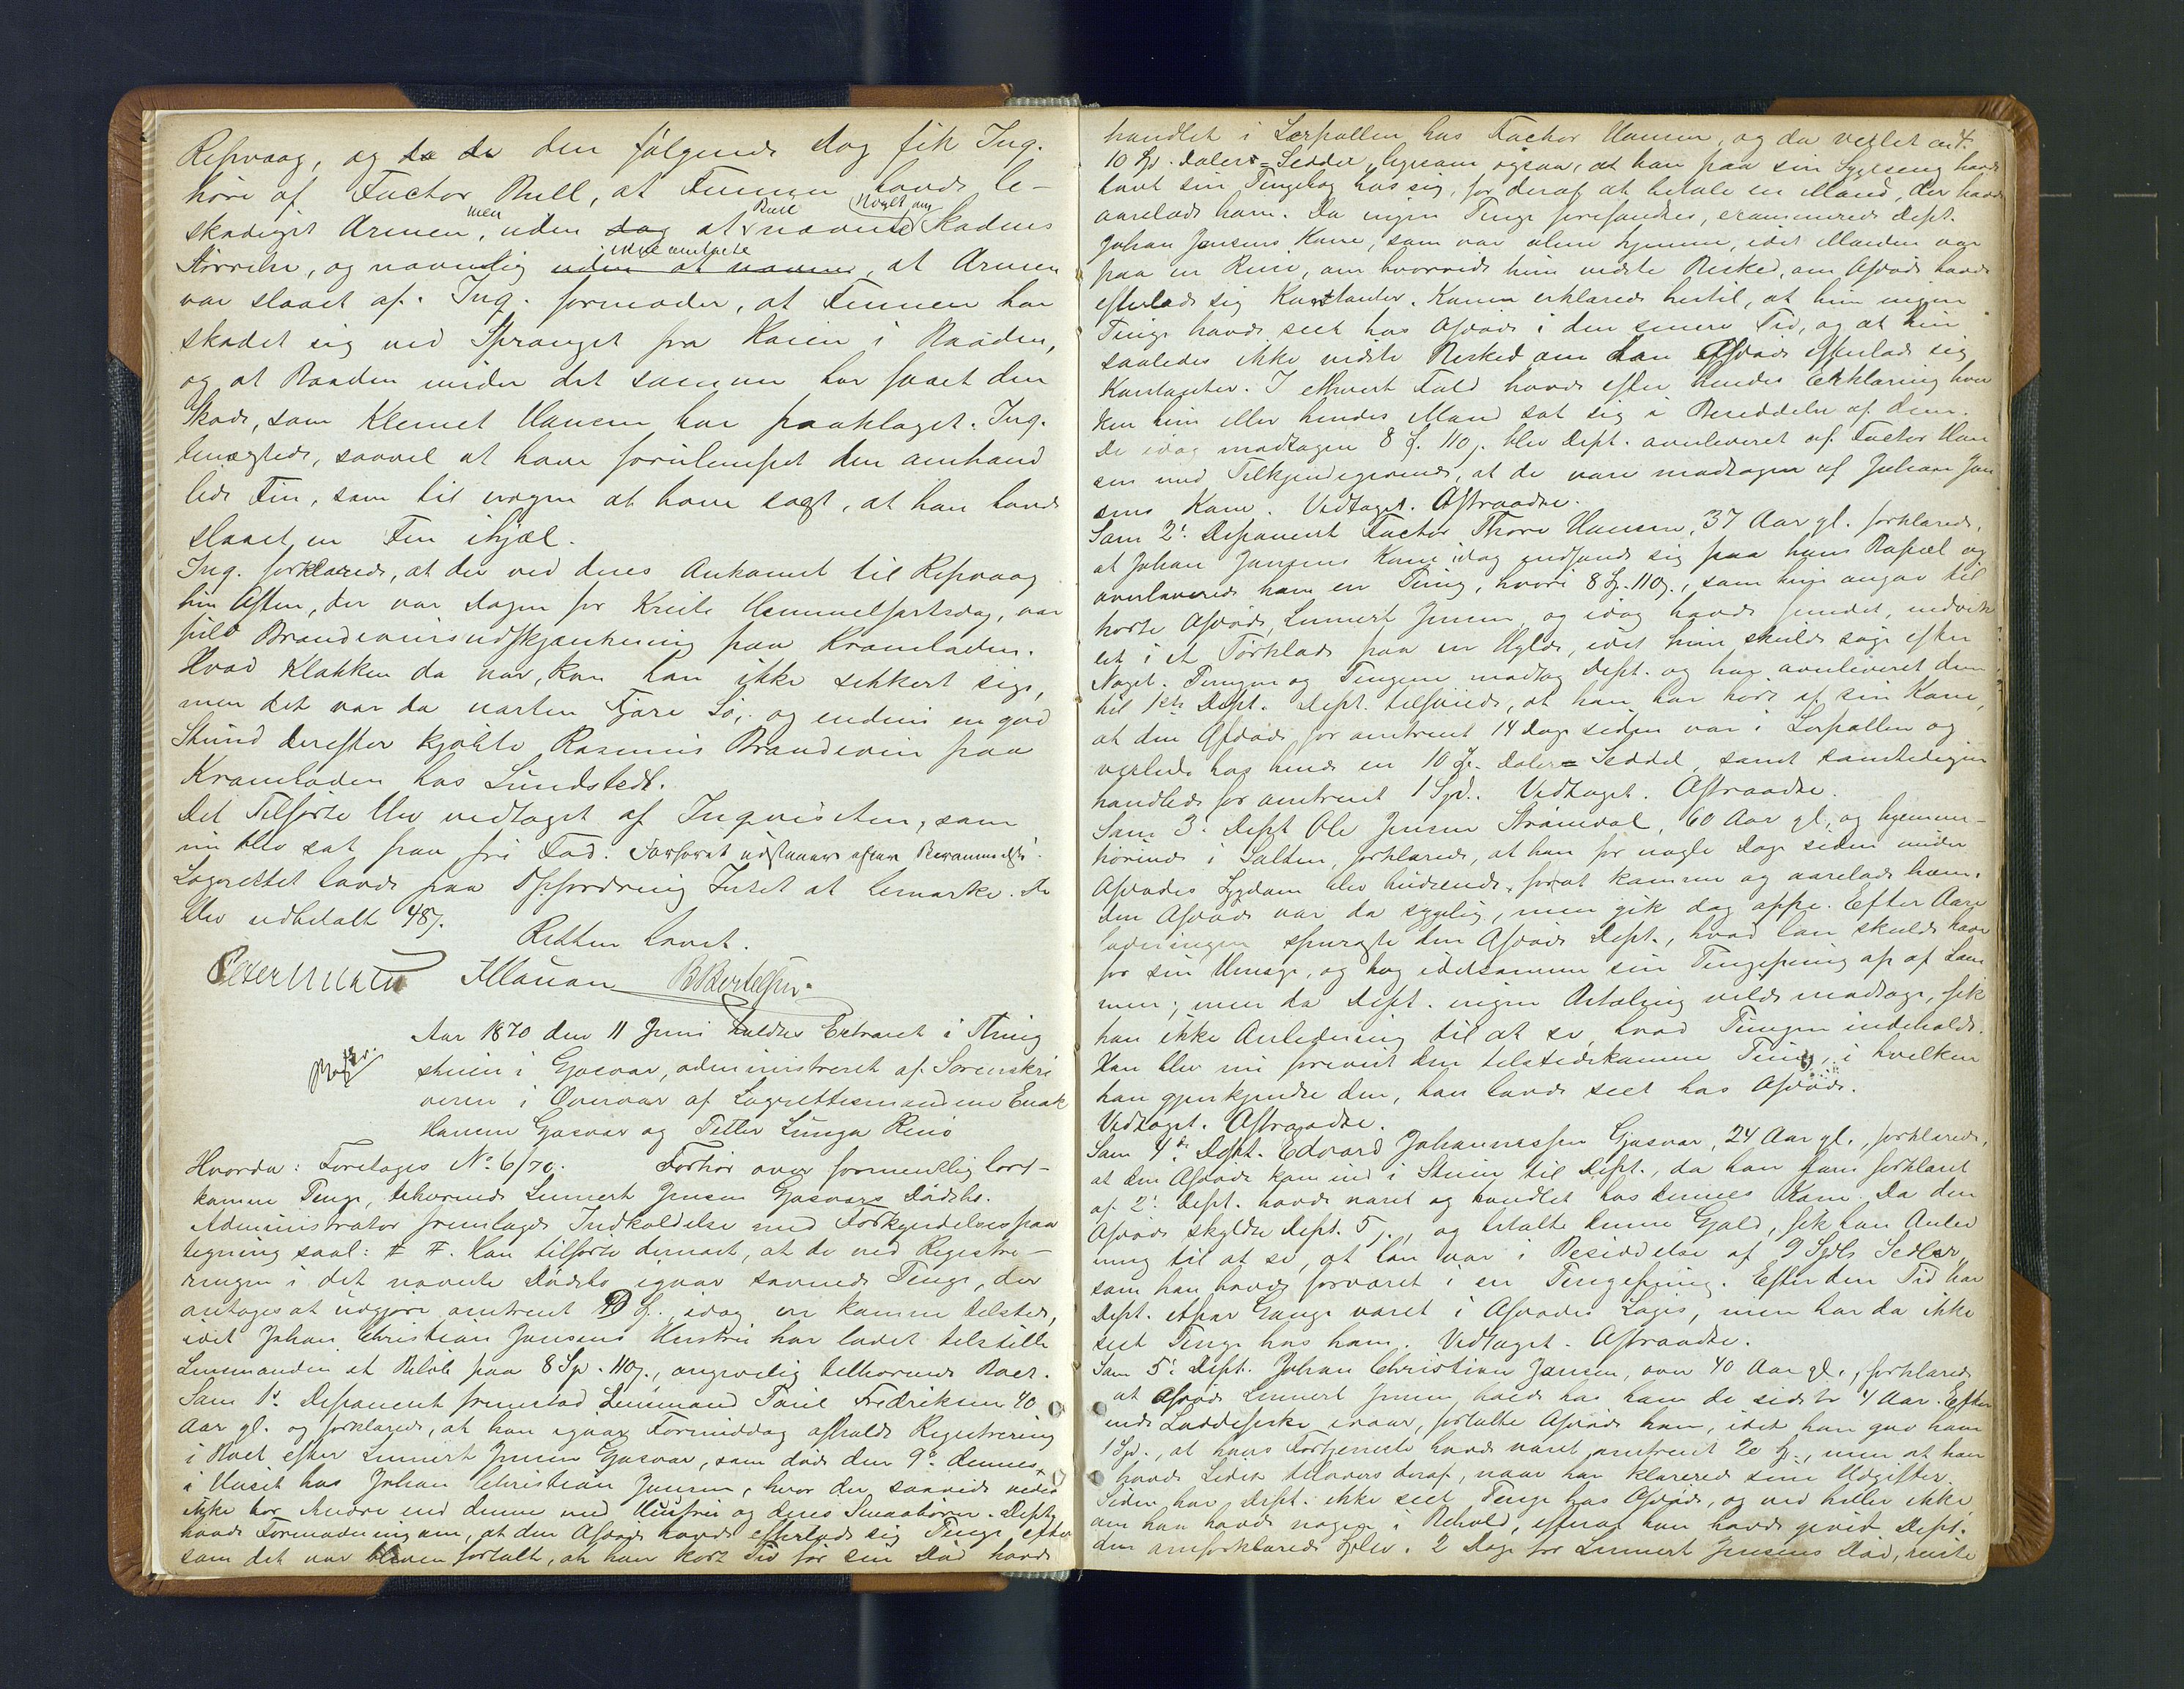 Repvaag, og da de den følgende Dag fik Inq.
høre af Factor Bull, at Finnen havde be-
skadiget Armen, men uden dog at Bull nævnte Noget om Skadens
Størrelse, og navnlig uden at nævne ikke omtalte, at Armen
var slaaet af. Inq. formoder, at Finnen har
skadet sig ved Spranget fra Kaien i Baaden,
og at Baaden under det samme har faaet den
Skade, som Klemet Hansen har paaklaget. Inq.
benægtede, saavel at have forulempet den omhand
lede Fin, som til nogen at have sagt, at han havde
slaaet en Fin ihjæl.
Inq. forklarede, at der ved deres Ankomst til Repvaag
hin Aften, der var Dagen før Kristi Himmelfartsdag, var
fuld Brændevinsudskjænkning paa Kramboden.
Hvad Klokken da var, kan han ikke sikkert sige,
men det var da næsten Fjære Sø, og endnu en god
Stund derefter kjøbte Rasmus Brændevin paa
Kramboden hos Lundstedt.
Det Tilførte blev vedtaget af Inqvisiten, som
nu blev sat paa fri Fod. Forhøret udstaaer efter Berammelse.
Lagrettet havde paa Opfordring Intet at bemærke. De
blev udbetalt 48 s.
Retten hævet.
Petermann
B Bertelsen
Aar 1870 den 11 Juni holdtes Extraret i Thing
stuen i Gjesvær, administreret af Sorenskri
veren i Overvær af Lagrettesmændene Enok
Hansen Gjesvær og Petter Lunga Renø
Hvorda: Foretages No 6/70. Forhør over formentlig bort-
komne Penge, tilhørende Lennert Jensen Gjesværs Dødsbo.
Administrator fremlagde Indkaldelse med Forkyndelsespaa
tegning saal: # #. Han tilførte dernæst, at de ved Registre-
ringen i det nævnte Dødsbo igaar savnede Penge, der
antages at udgjøre omtrent 10 Sp. idag er komne tilstede,
idet Johan Christian Jansens Hustru har ladet tilstille
Lensmanden et Beløb paa 8 Sp. 110 s., angivelig tilhørende Boet.
Som 1ste Deponent fremstod Lensmand Poul Fredriksen 40
Aar gl. og forklarede, at han igaar Formiddag afholdt Registrering
i Boet efter Lennert Jensen Gjesvær, som døde den 9de dennes
i Huset hos Johan Christian Jansen, hvor der saavidt vides
ikke bor Andre end denne med Hustru og deres Smaabørn. Dept.
havde Formodning om, at den Afdøde havde efterladt sig Penge, efter
som det var bleven fortalt, at han kort Tid før sin Død havde
handlet i Lorpollen hos Factor Hansen, og da vexlet en
10 Sp. Daler-Seddel, ligesom ogsaa, at han paa sin Sygeseng havde
havt sin Pengebog hos sig, for deraf at betale en Mand, der havde
aareladt ham. Da ingen Penge forefandtes, examinerede Dept.
Johan Jansens Kone, som var alene hjemme, idet Manden var
paa en Reise, om hvorvidt hun vidste Besked, om Afdøde havde
efterladt sig Kontanter. Konen erklærede hertil, at hun ingen
Penge havde seet hos Afdøde i den senere Tid, og at hun
saaledes ikke vidste Besked om han Afdøde efterlod sig
Kontanter. I ethvert Fald havde efter hendes Erklæring hver
ken hun eller hendes Mand sat sig i Besiddelse af dem.
De idag modtagne 8 Sp. 110 s. blev Dept. overleveret af Factor Han
sen med Tilkjendegivende, at de vare modtagne af Johan Jan
sens Kone. Vedtaget. Aftraadte.
Som 2. Deponent Factor Thore Hansen, 37 Aar gl. forklarede,
at Johan Jansens Kone idag indfandt sig paa hans Bopæl og
overleverede ham en Pung, hvori 8 Sp. 110 s., som hun angav til
hørte Afdøde Lennert Jensen, og idag havde fundet, indvik
let i et Tørklæde paa en Hylde, idet hun skulde søge efter
Noget. Pungen og Pengene modtog Dept. og har overleveret dem
til 1ste Dept. Dept. tilføiede, at han har hørt af sin Kone,
at den Afdøde for omtrent 14 Dage siden var i Lorpollen og
vexlede hos hende en 10 Sp. Daler-Seddel, samt samtidigen
handlede for omtrent 1 Spd. Vedtaget. Aftraadte.
Som 3. Dept Ole Jensen Strømdal, 60 Aar gl. og hjemme-
hørende i Salten, forklarede, at han for nogle Dage siden under
Afdødes Sygdom blev budsendt, forat komme og aarelade ham.
Den Afdøde var da sygelig, men gik dog oppe. Efter Aare
ladningen spurgte den Afdøde Dept., hvad han skulde have
for sin Umage, og tog idetsamme sin Pengepung op af Lom
men; men da Dept. ingen Betaling vilde modtage, fik
han ikke Anledning til at se, hvad Pungen indeholdt.
Han blev nu forevist den tilstedekomne Pung, i hvilken
han gjenkjendte den, han havde seet hos Afdøde.
Vedtaget. Aftraadte.
Som 4de Dept. Edvard Johannessen Gjesvær, 24 Aar gl., forklarede,
at den Afdøde kom ind i Stuen til Dept., da han som forklaret
af 2. Dept. havde været og handlet hos dennes Kone. Da den
Afdøde skyldte Dept. 5 , og betalte denne Gjæld, fik han Anled
ning til at se, at han var i Besiddelse af 9 Spds Sedler,
som han havde forvaret i en Pengepung. Efter den Tid har
Dept. et Par Gange været i Afdødes Logis, men har da ikke
seet Penge hos ham. Vedtaget. Aftraadte.
Som 5. Dept. Johan Christian Jansen, over 40 Aar gl., forklarede
at Afdøde Lennert Jensen havde hos ham de sidste 4 Aar. Efter
endt Loddefiske ivaar, fortalte Afdøde ham, idet han gav ham
1 Spd., at hans Fortjeneste havde været omtrent 20 Sp., men at han
havde Lidet tilovers deraf, naar han klarerede sine Udgifter.
Siden har Dept. ikke seet Penge hos Afdøde, og ved heller ikke,
om han havde nogen i Behold, efterat han havde givet Dept.
den omforklarede Spdlr. 2 Dage før Lennert Jensens Død, reiste